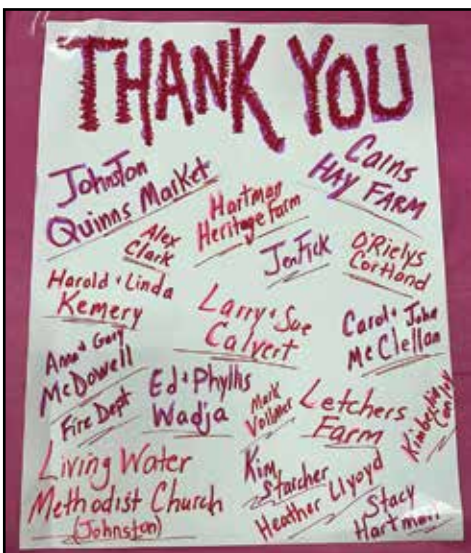 THANK YOU
Johnston
Quinns Market
Cains
HAY FARM
Alex
Clark
Hartman
Heritage Farm
Jen Fick
O'Rielys
Cortland
Harold + Linda
Kemery
Larry + Sue
Calvert
Carol + John
McClellan
Anna + Gary
McDowell
Fire Dept
Ed + Phyllis
Wadja
Mark
Vollmer
Letchers
Farm
Kimberlee
Living Water
Methodist Church
(Johnston)
Kim
Starcher
Heather Llyoyd
Stacy
Hartman